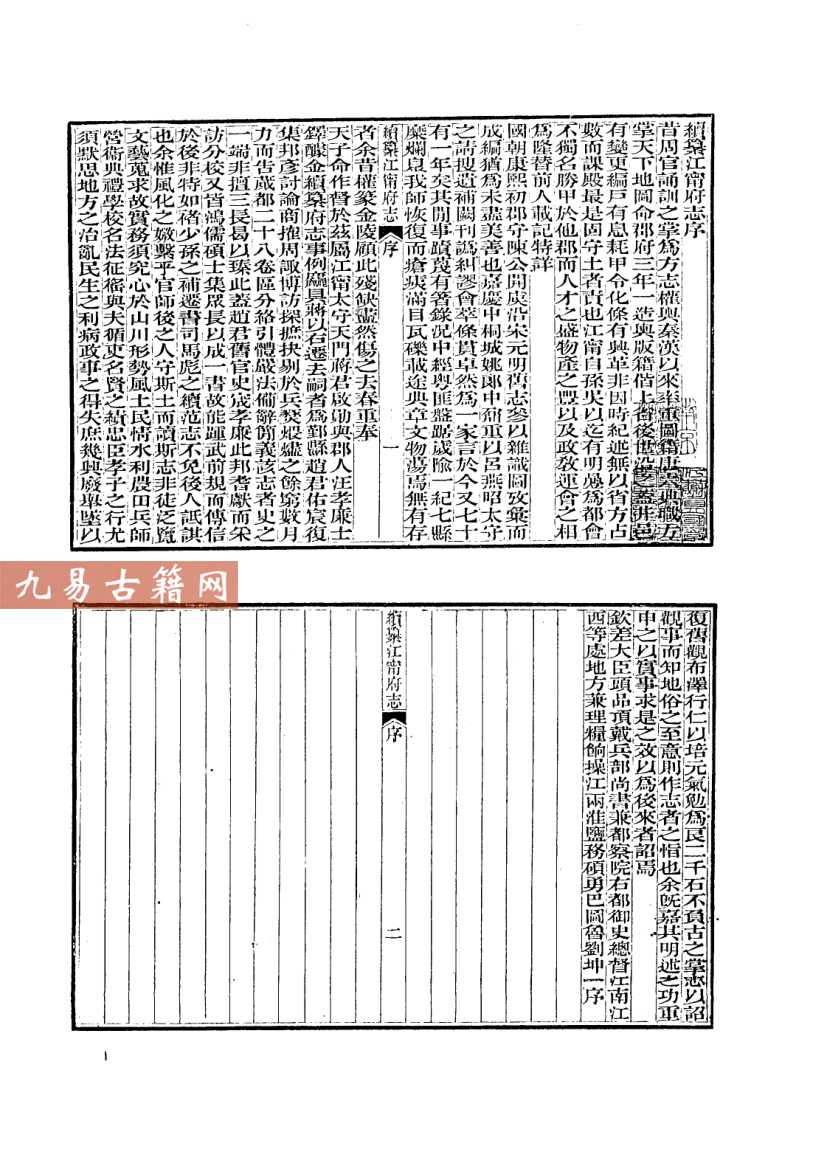 續纂江甯府志序
昔周官誦訓之掌為方志權輿秦漢以來率重圖籍唐六典職方
掌天下地圖命郡府三年一造與版籍偕上省後世沿之蓋井邑
有變更編戶有息耗甲令化條有興革非因時紀述無以省方占
數而課殿最是固守土者責也江甯自孫吳以迄有明為都會
不獨名勝甲於他郡而人才之盛物產之豐以及政教運會之相
為隆替前人載記特詳
國朝康熙初郡守陳公開虞沿宋元明舊志參以雜識圖攷彙而
成編猶為未盡美善也嘉慶中桐城姚郎中鼐重以呂燕昭太守
之請搜遺補闕刊譌糾謬會萃條貫卓然為一家言於今又七十
有一年矣其閒事蹟莫有箸錄況中經粵匪盤踞歲險一紀七縣
糜爛自我師恢復而瘡痍滿目瓦礫載途典章文物蕩焉無有存
續纂江甯府志
序
一
者余昔權篆金陵顧此殘缺盡然傷之去春重奉
天子命作督於茲屬江甯太守天門蔣君啟勛與郡人汪孝廉士
鐸醵金續纂府志事例麤具蔣以右遷去嗣者為鄞縣趙君佑宸復
集邦彥討論商搉周諏博訪探摭抉剔於兵燹煨燼之餘窮數月
力而告蕆都二十八卷區分絡引體嚴法備辭簡義該志者史之
一端非擅三長曷以臻此蓋趙君舊官史宬孝廉此邦耆獻而采
訪分校又皆鴻儒碩士集眾長以成一書故能踵武前規而傳信
於後非特如褚少孫之補遷書司馬彪之續范志不免後人詆諆
也余惟風化之媺繫乎官師後之人守斯土而讀斯志非徒泛覽
文藝蒐求故實務須究心於山川形勢風土民情水利農田兵師
營衞典禮學校名法征榷與夫循吏名賢之績忠臣孝子之行尤
須默思地方之治亂民生之利病政事之得失庶幾興廢舉墜以
復舊觀布澤行仁以培元氣勉為良二千石不負古之掌志以詔
觀事而知地俗之至意則作志者之恉也余既嘉其明述之功重
申之以實事求是之效以為後來者詔焉
欽差大臣頭品頂戴兵部尚書兼都察院右都御史總督江南江
西等處地方兼理糧餉操江兩淮鹽務碩勇巴圖魯劉坤一序
續纂江甯府志
序
二
九易古籍网
1